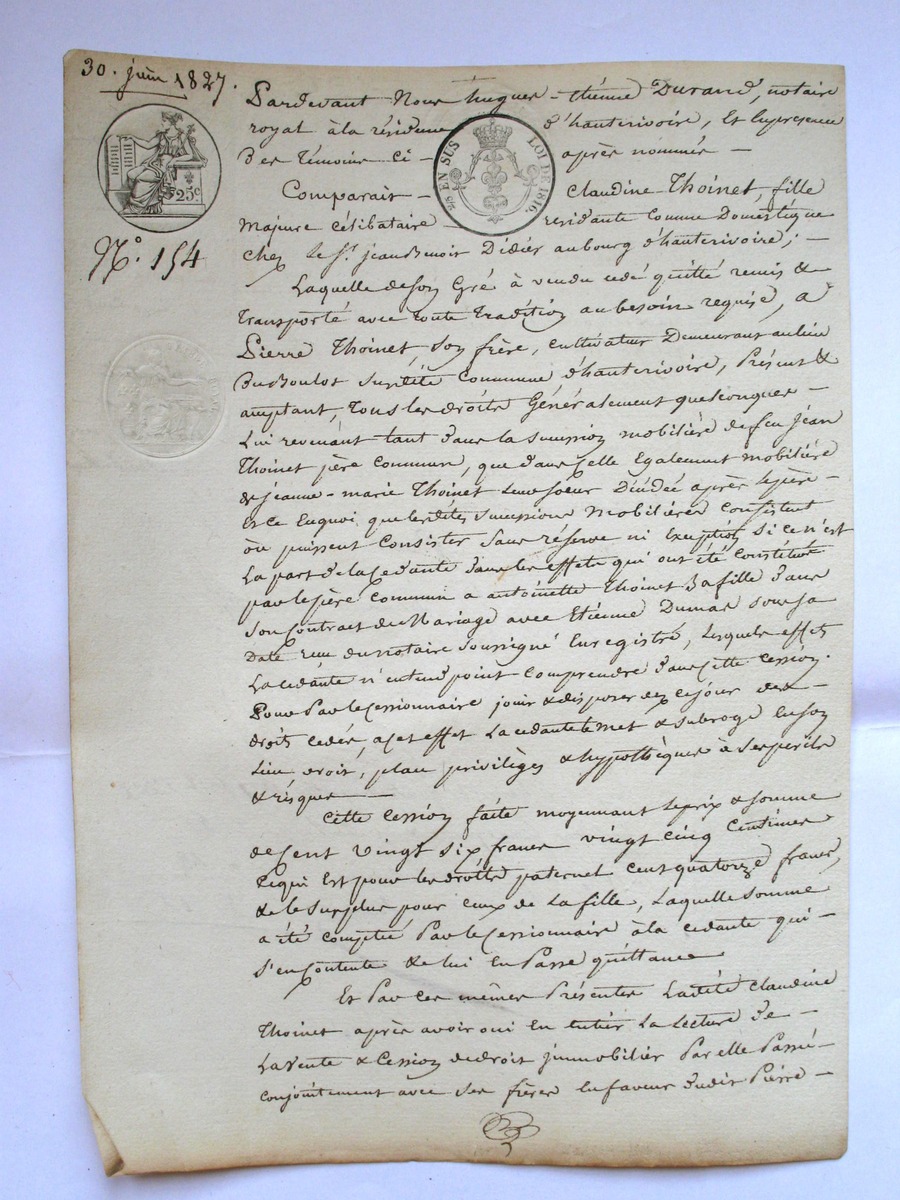 30. juin 1827.
25c
25c EN SUS LOI DE 1816.
N.o 154
Pardevant Nous hugues-étienne Durand, notaire
royal à la résidence d'hauterivoire, et en presence
des témoins ci - après nommés -
Comparait - Claudine Thoinet, fille
majure célibataire - residante comme Domestique
chez le Sr. jean Benoit Didier au bourg d'hauterivoire; -
Laquelle de son gré à vendu cédé quitté remis &
transporté avec toute tradition au besoin requise, a
Pierre Thoinet, son frère, cultivateur Demeurant au lieu
du Boulot susdité commune d'hauterivoire, Présent &
acceptant, tous les droits Généralement quelconques -
Lui revenant tant dans la succession mobilière de feu jean
Thoinet père commun, que dans celle également mobilière
de jeanne-marie Thoinet leur soeur Dècédée après le père -
et ce enquoi que lesdites successions mobilières consistent
ou puissent consister sans réserve ni exeption si ce n'est
La part de la cedante dans les effets qui ont été constitués
par le père commun a antoinette Thoinet sa fille dans
son contrat de mariage avec etienne Dumas sous sa
Date reçu du notaire soussigné enregistré, lesquels effets
La cédante n'entend point comprendre dans cette cession.
Pour Par le cessionnaire jouir & disposer dez ce jour des -
droits cedés, a cet effet La cédante le met & subroge en son
Lieu droit, place privilèges & hypothèques à ses perils
& risques -
Cette cession faite moyennant le prix & somme
de cent vingt six francs vingt cinq centimes
ce qui est pour les droits paternel cent quatorze francs,
& le surplus pour ceux de la fille, Laquelle somme
a été comptée Par le cessionnaire à la cedante qui -
s'en contente & lui en Passe quittance
Et Par ces mêmes Présentes Ladité claudine
Thoinet après avoir oui en entier La Lecture de -
La vente & cession de droit jmmobilier Par elle Passé -
conjointement avec ses frères en faveur dudit Pierre -